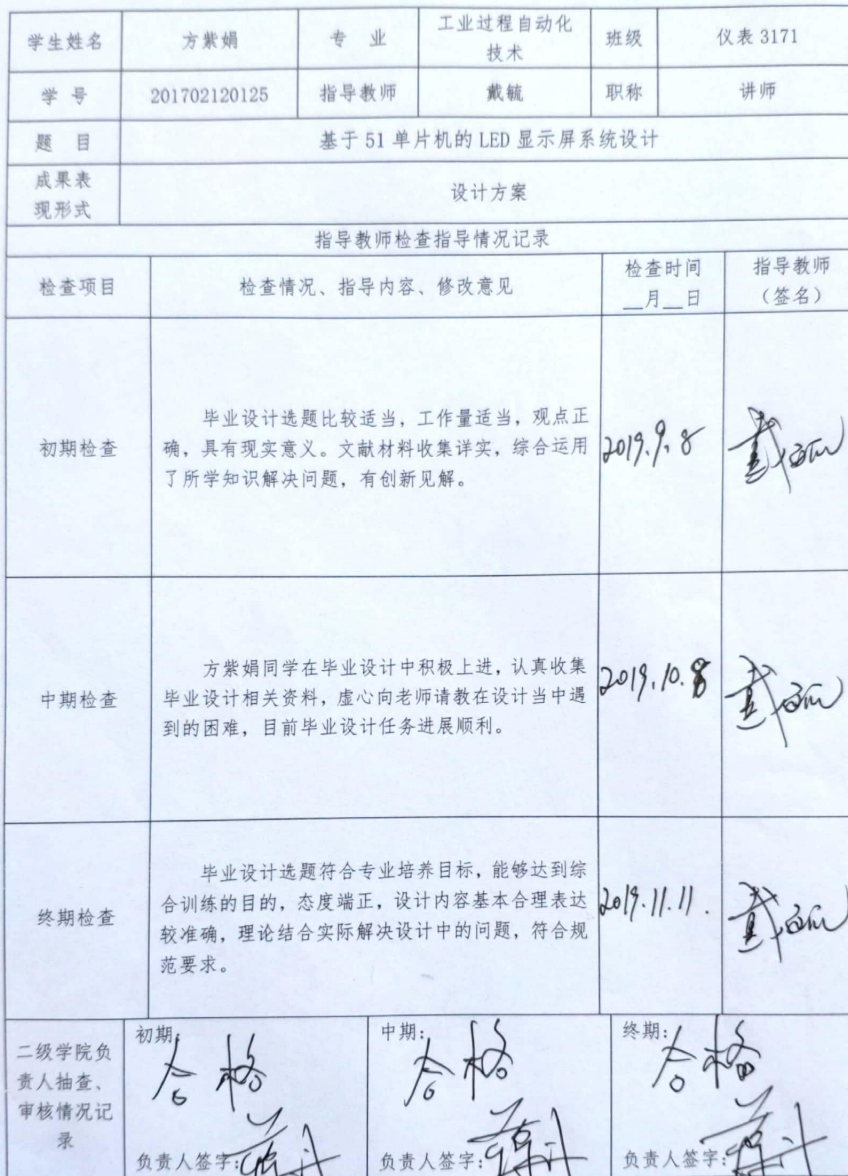 学生姓名 方紫娟 专 业 工业过程自动化 班级 仪表 3171
技术
学 号 201702120125 指导教师 戴毓 职称 讲师
题 目 基于 51 单片机的 LED 显示屏系统设计
成果表 设计方案
现形式
指导教师检查指导情况记录
检查项目 检查情况、指导内容、修改意见 检查时间 指导教师
__月__日 （签名）
初期检查
毕业设计选题比较适当，工作量适当，观点正
确，具有现实意义。文献材料收集详实，综合运用
了所学知识解决问题，有创新见解。
2019.9.8
中期检查
方紫娟同学在毕业设计中积极上进，认真收集
毕业设计相关资料，虚心向老师请教在设计当中遇
到的困难，目前毕业设计任务进展顺利。
2019.10.8
终期检查
毕业设计选题符合专业培养目标，能够达到综
合训练的目的，态度端正，设计内容基本合理表达
较准确，理论结合实际解决设计中的问题，符合规
范要求。
2019.11.11.
二级学院负
责人抽查、
审核情况记
录
初期:
合格
负责人签字:
中期:
合格
负责人签字:
终期:
合格
负责人签字: